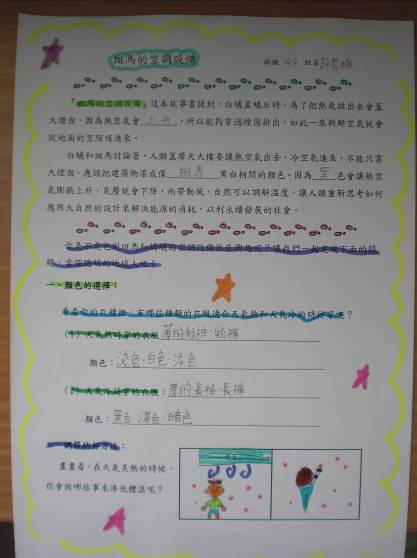 斑馬的空調設備
班級 42 姓名許
「斑馬的空調設備」這本故事書提到，白蟻蓋蟻丘時，為了把熱氣排出去會蓋
大煙囪，因為熱空氣會 上升 ，所以能夠穿過煙囪排出，如此一來新鮮空氣就會
從地面的空隙吸進來。
白蟻和斑馬討論著，人類蓋摩天大樓要讓熱空氣出去，冷空氣進來，不能只靠
大煙囪，應該把建築物漆成像 斑馬 黑白相間的顏色。因為 黑 色會讓熱空
氣膨脹上升，氣壓就會下降，而帶動風，自然可以調解溫度。讓人類重新思考如何
應用大自然的設計來解決能源的消耗，以利永續發展的社會。
你是不是也對斑馬和螞蟻的空調設備很感興趣呢？讓我們一起完成下面的問
題，當個聰明的地球人吧！
一、顏色的選擇：
看看你的衣櫃裡，有哪些種類的衣服適合天氣熱和天氣冷的時候穿呢？
(1) 天氣熱時穿的衣服 薄的短袖、短褲
顏色：淺色、白色、淡色
(2) 天氣冷時穿的衣服：厚的長袖、長褲
顏色：黑色、深色、暗色
調節的好方法：
畫畫看，在天氣炎熱的時候，
你會做哪些事來降低體溫呢？